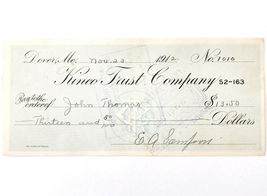 Dover, Me. Nov. 22 1912 No. 1010
Kineo Trust Company 52-163
Pay to the
order of John Thomas $13.50
Thirteen and 50/100 Dollars
E. A. Sampson